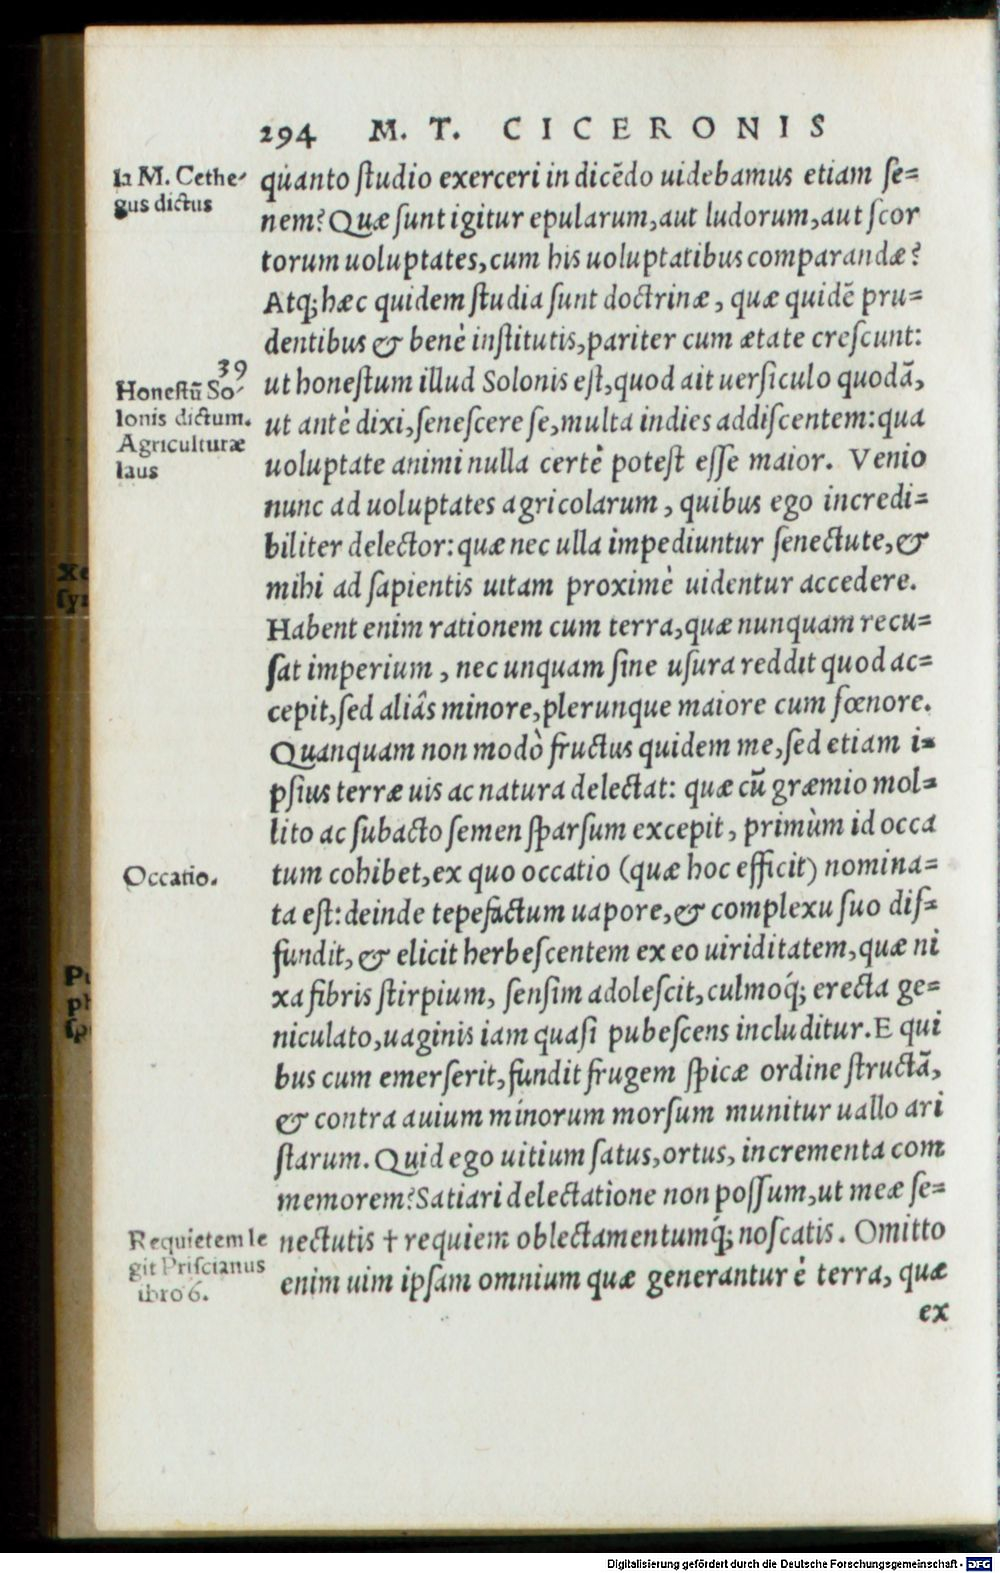 294 M. T. CICERONIS
la M. Cethe-
gus dictus
quanto ſtudio exerceri in dicẽdo uidebamus etiam ſe=
nem? Quæ ſunt igitur epularum, aut ludorum, aut ſcor
torum uoluptates, cum his uoluptatibus comparandæ?
Atq; hæc quidem ſtudia ſunt doctrinæ, quæ quidẽ pru=
dentibus & benè inſtitutis, pariter cum ætate creſcunt:
39
Honeſtũ So-
lonis dictum.
Agriculturæ
laus
ut honeſtum illud Solonis eſt, quod ait uerſiculo quodã,
ut antè dixi, ſeneſcere ſe, multa indies addiſcentem: qua
uoluptate animi nulla certè poteſt eſſe maior. Venio
nunc ad uoluptates agricolarum, quibus ego incredi=
biliter delector: quæ nec ulla impediuntur ſenectute, &
mihi ad ſapientis uitam proximè uidentur accedere.
Habent enim rationem cum terra, quæ nunquam recu=
ſat imperium, nec unquam ſine uſura reddit quod ac=
cepit, ſed aliâs minore, plerunque maiore cum fœnore.
Quanquam non modò fructus quidem me, ſed etiam i=
pſius terræ uis ac natura delectat: quæ cũ græmio mol=
lito ac ſubacto ſemen ſparſum excepit, primùm id occa
Occatio.
tum cohibet, ex quo occatio (quæ hoc efficit) nomina=
ta eſt: deinde tepefactum uapore, & complexu ſuo diſ=
fundit, & elicit herbeſcentem ex eo uiriditatem, quæ ni
xa fibris ſtirpium, ſenſim adoleſcit, culmoq́; erecta ge=
niculato, uaginis iam quaſi pubeſcens includitur. E qui
bus cum emerſerit, fundit frugem ſpicæ ordine ſtructã,
& contra auium minorum morſum munitur uallo ari
ſtarum. Quid ego uitium ſatus, ortus, incrementa com
memorem? Satiari delectatione non poſſum, ut meæ ſe=
Requietem le
git Priſcianus
ibro 6.
nectutis † requiem oblectamentumq́; noſcatis. Omitto
enim uim ipſam omnium quæ generantur è terra, quæ
ex
Digitalisierung gefördert durch die Deutsche Forschungsgemeinschaft - DFG